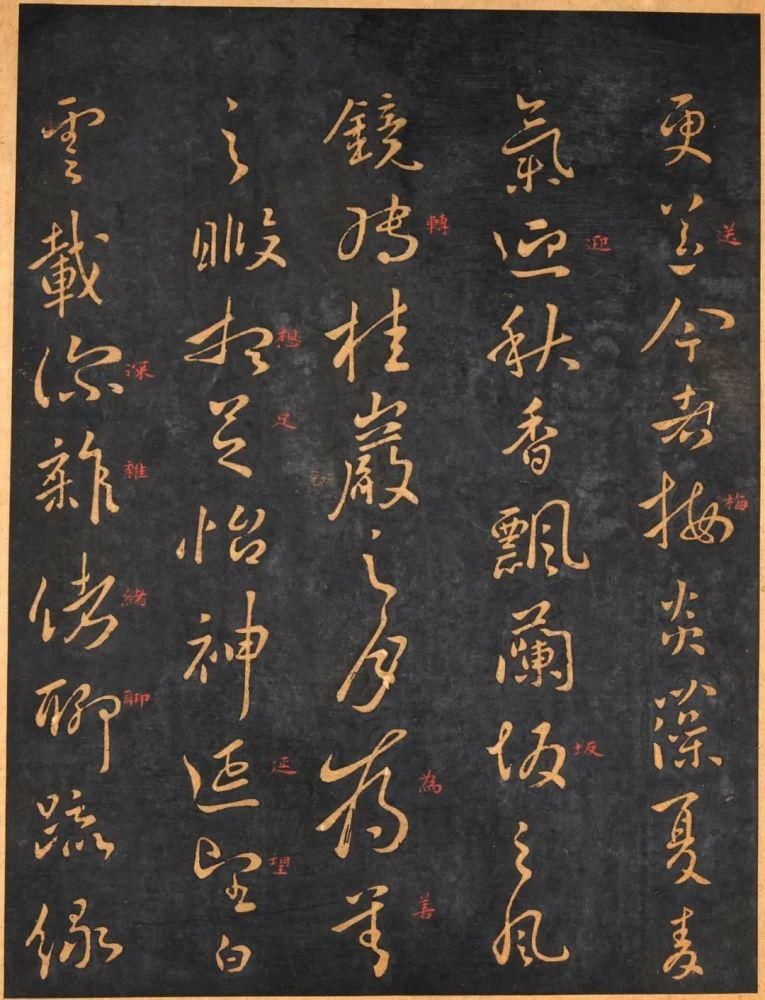 更送今者梅炎藻夏麥
送
梅
氣迎秋香飄蘭坂之風
迎
坂
鏡轉桂巖之月為善
轉
為
善
之暇想足怡神延望白
想
足
延
望
雲載深雜緒聊疏緣
深
雜
緒
聊